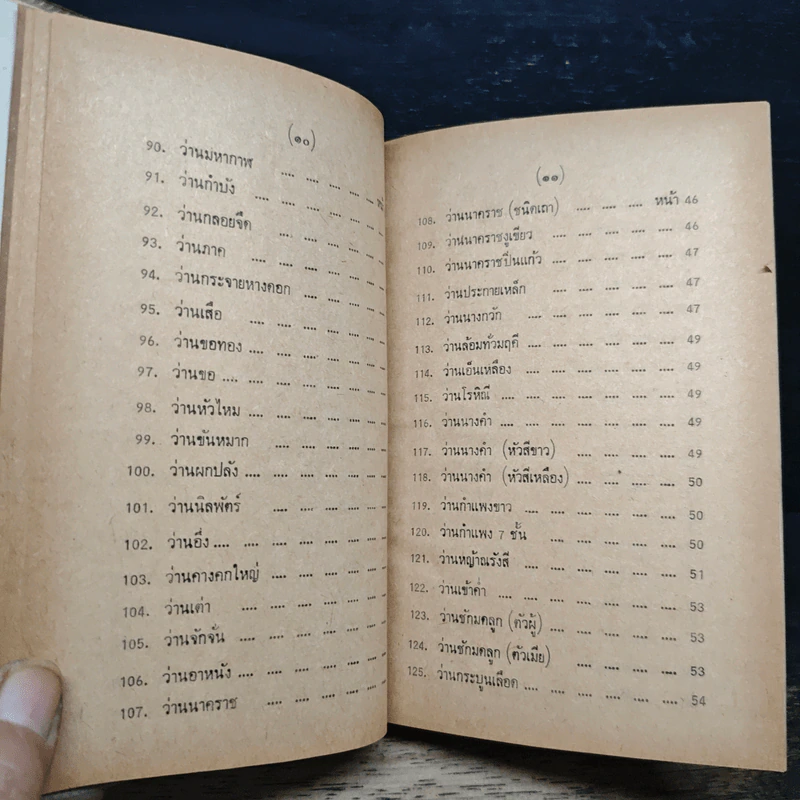 (๑๐)
90. ว่านมหากาฬ .... .... .... ....
91. ว่านกำบัง .... .... .... ....
92. ว่านกลอยจืด .... .... .... ....
93. ว่านภาค .... .... .... ....
94. ว่านกระจายหางดอก .... .... ....
95. ว่านเสือ .... .... .... .... ....
96. ว่านขอทอง .... .... .... .... ....
97. ว่านขอ .... .... .... .... .... ....
98. ว่านหัวไหม .... .... .... .... ....
99. ว่านขันหมาก .... .... .... ....
100. ว่านผกปลัง .... .... .... .... ....
101. ว่านนิลพัตร์ .... .... .... ....
102. ว่านอึ่ง .... .... .... .... .... ....
103. ว่านคางคกใหญ่ .... .... .... ....
104. ว่านเต่า .... .... .... .... ....
105. ว่านจักจั่น .... .... .... .... ....
106. ว่านอาหนัง .... .... .... .... ....
107. ว่านนาคราช .... .... .... ....
(๑๑)
108. ว่านนาคราช (ชนิดเถา) .... .... .... หน้า 46
109. ว่านนาคราชงูเขียว .... .... .... .... 46
110. ว่านนาคราชปิ่นแก้ว .... .... .... .... 47
111. ว่านประกายเหล็ก .... .... .... .... 47
112. ว่านนางกวัก .... .... .... .... .... 47
113. ว่านล้อมทั่วมฤคี .... .... .... .... .... 49
114. ว่านเอ็นเหลือง .... .... .... .... .... 49
115. ว่านโรหิณี .... .... .... .... .... .... 49
116. ว่านนางคำ .... .... .... .... .... .... 49
117. ว่านนางคำ (หัวสีขาว) .... .... .... .... 49
118. ว่านนางคำ (หัวสีเหลือง) .... .... .... 50
119. ว่านกำแพงขาว .... .... .... .... .... 50
120. ว่านกำแพง 7 ชั้น .... .... .... .... 50
121. ว่านหญ้าณรังสี .... .... .... .... .... 51
122. ว่านเข้าค่ำ .... .... .... .... .... .... 53
123. ว่านชักมดลูก (ตัวผู้) .... .... .... .... 53
124. ว่านชักมดลูก (ตัวเมีย) .... .... .... 53
125. ว่านกระบูนเลือด .... .... .... .... .... 54